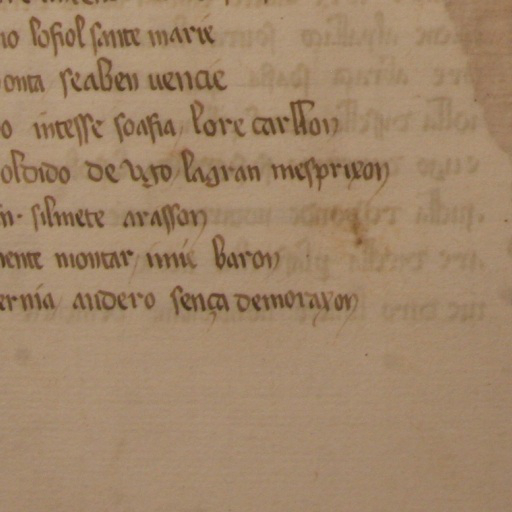 io lofiol sante marie
onta seaben uencie
o intesse soasia lore carllon
oldido de Vgo lagran mesprixon
n· silmete arasson
mente montar imie baron
ernia andero sença demoraxon